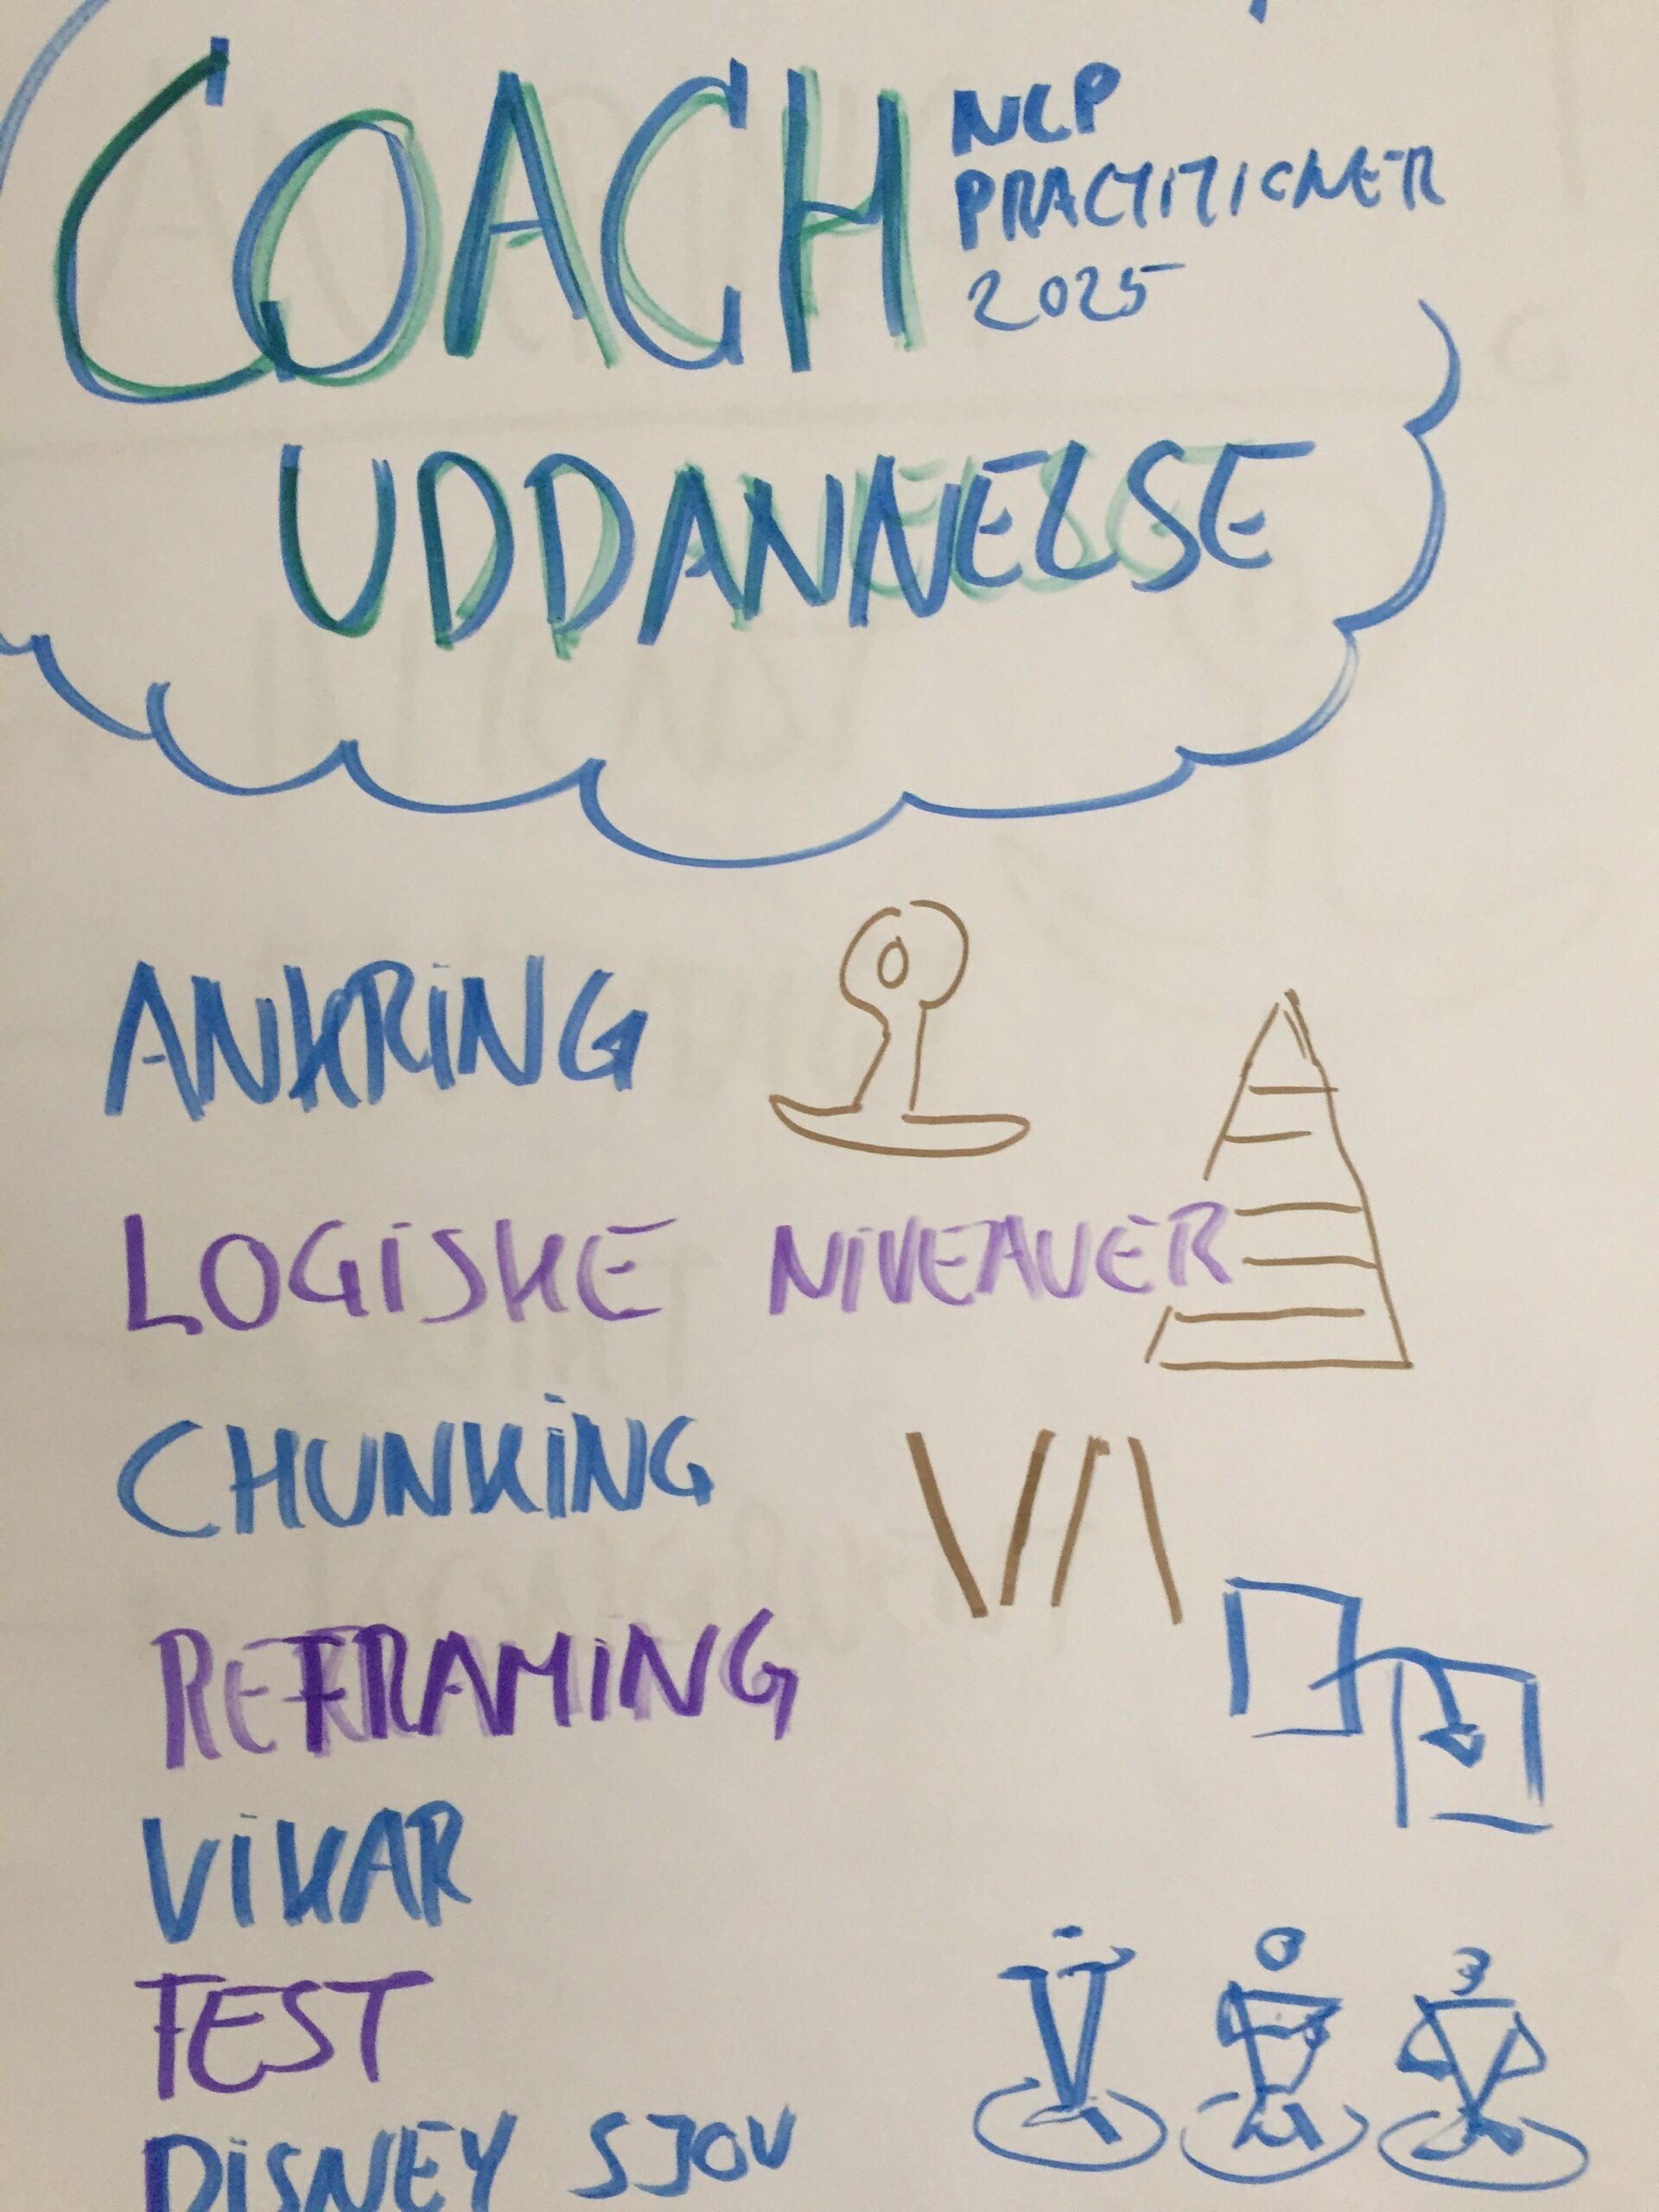 COACH
NLP
PRACTITIONER
2025
UDDANNELSE
ANKRING
LOGISKE NIVEAUER
CHUNKING
REFRAMING
VIKAR
TEST
DISNEY SJOV